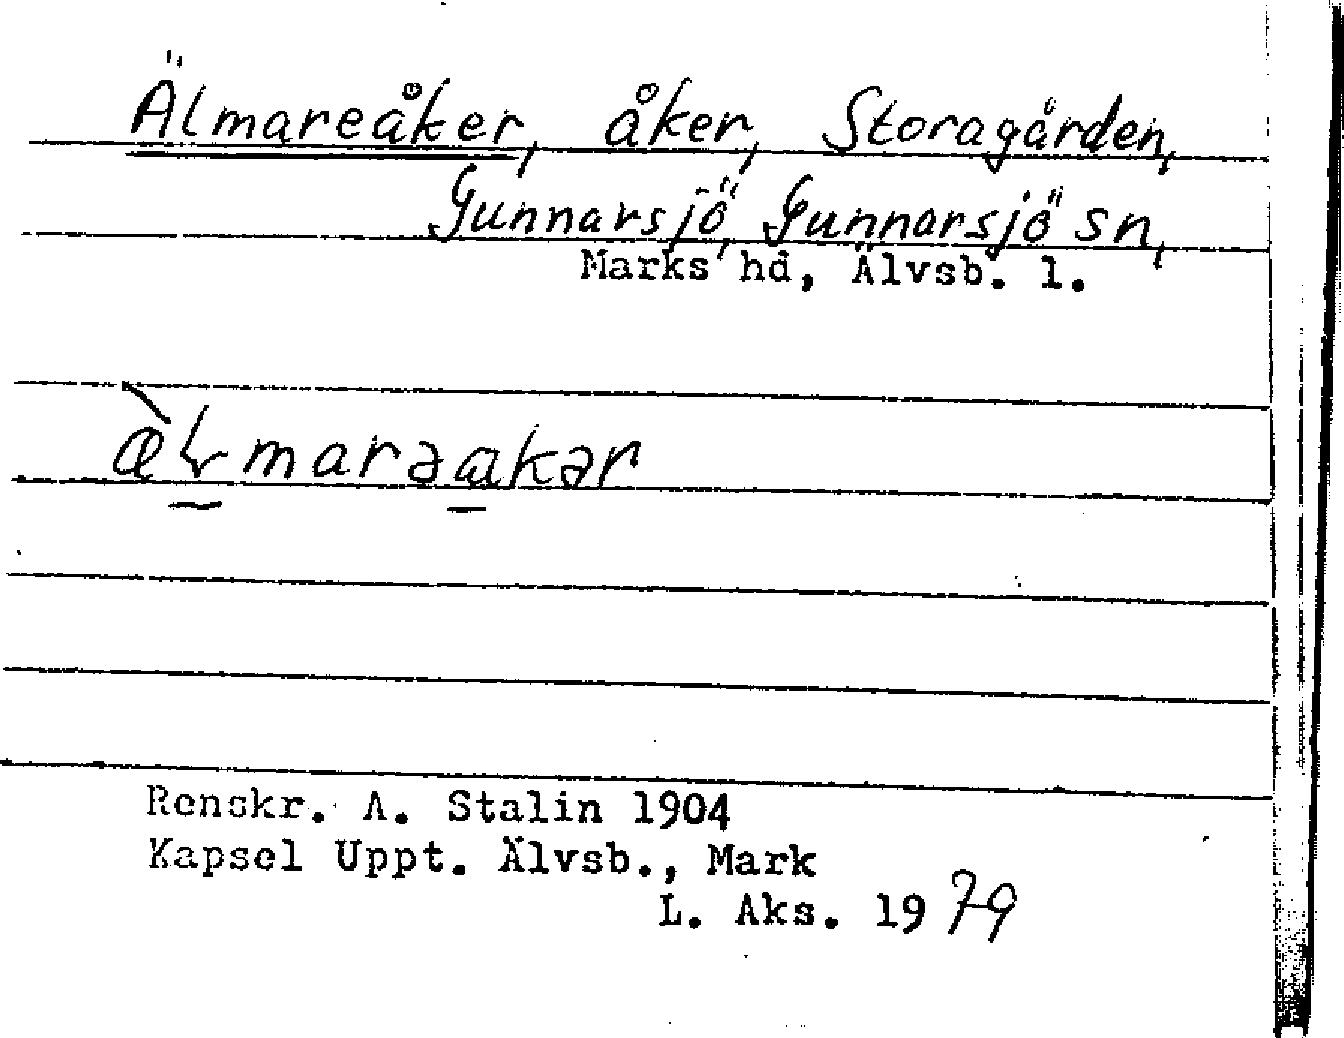 Älmareåker, åker, Storagården,
Gunnarsjö, Gunnarsjö sn,
Marks hd, Älvsb. l.
Renskr. A. Stalin 1904
Kapsel Uppt. Älvsb., Mark
L. Aks. 1979